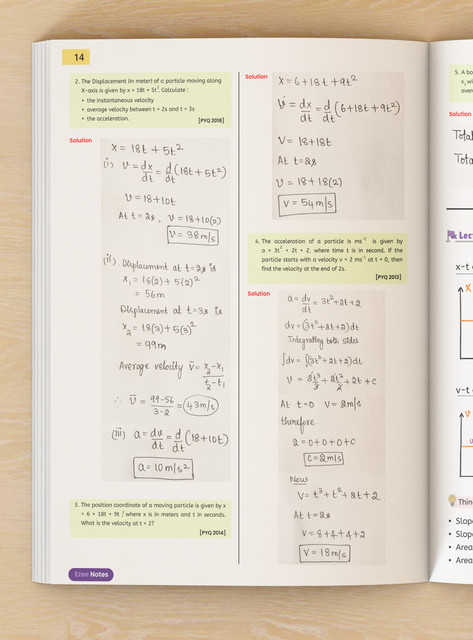 14
2. The Displacement (in meter) of a particle moving along
X-axis is given by x = 18t + 5t². Calculate :
• the instantaneous velocity
• average velocity between t = 2s and t = 3s
• the acceleration.
[PYQ 2018]
Solution
x = 18t + 5t²
(i) v = dx/dt = d/dt (18t + 5t²)
v = 18 + 10t
At t = 2s, v = 18 + 10(2)
v = 38 m/s
(ii) Displacement at t = 2s is
x₁ = 18(2) + 5(2)²
= 56m
Displacement at t = 3s is
x₂ = 18(3) + 5(3)²
= 99m
Average velocity v̄ = x₂ - x₁ / t₂ - t₁
∴ v̄ = 99 - 56 / 3 - 2 = 43 m/s
(iii) a = dv/dt = d/dt (18 + 10t)
a = 10 m/s²
3. The position coordinate of a moving particle is given by x
= 6 + 18t + 9t², where x is in meters and t in seconds.
What is the velocity at t = 2?
[PYQ 2014]
Ezee Notes
Solution
x = 6 + 18t + 9t²
v = dx/dt = d/dt (6 + 18t + 9t²)
v = 18 + 18t
At t = 2s
v = 18 + 18(2)
v = 54 m/s
4. The acceleration of a particle is ms⁻² is given by
a = 3t² + 2t + 2, where time t is in second. If the
particle starts with a velocity v = 2 ms⁻¹ at t = 0, then
find the velocity at the end of 2s.
[PYQ 2013]
Solution
a = dv/dt = 3t² + 2t + 2
dv = (3t² + 2t + 2) dt
Integrating both sides
∫dv = ∫(3t² + 2t + 2) dt
v = 3t³/3 + 2t²/2 + 2t + c
At t = 0 v = 2m/s
therefore
2 = 0 + 0 + 0 + c
c = 2m/s
Now
v = t³ + t² + 2t + 2
At t = 2s
v = 8 + 4 + 4 + 2
v = 18 m/s
5. A bo
Solution
Total
Tota
Lec
x-t
X
v-t
V
Thin
• Slop
• Slop
• Area
• Area